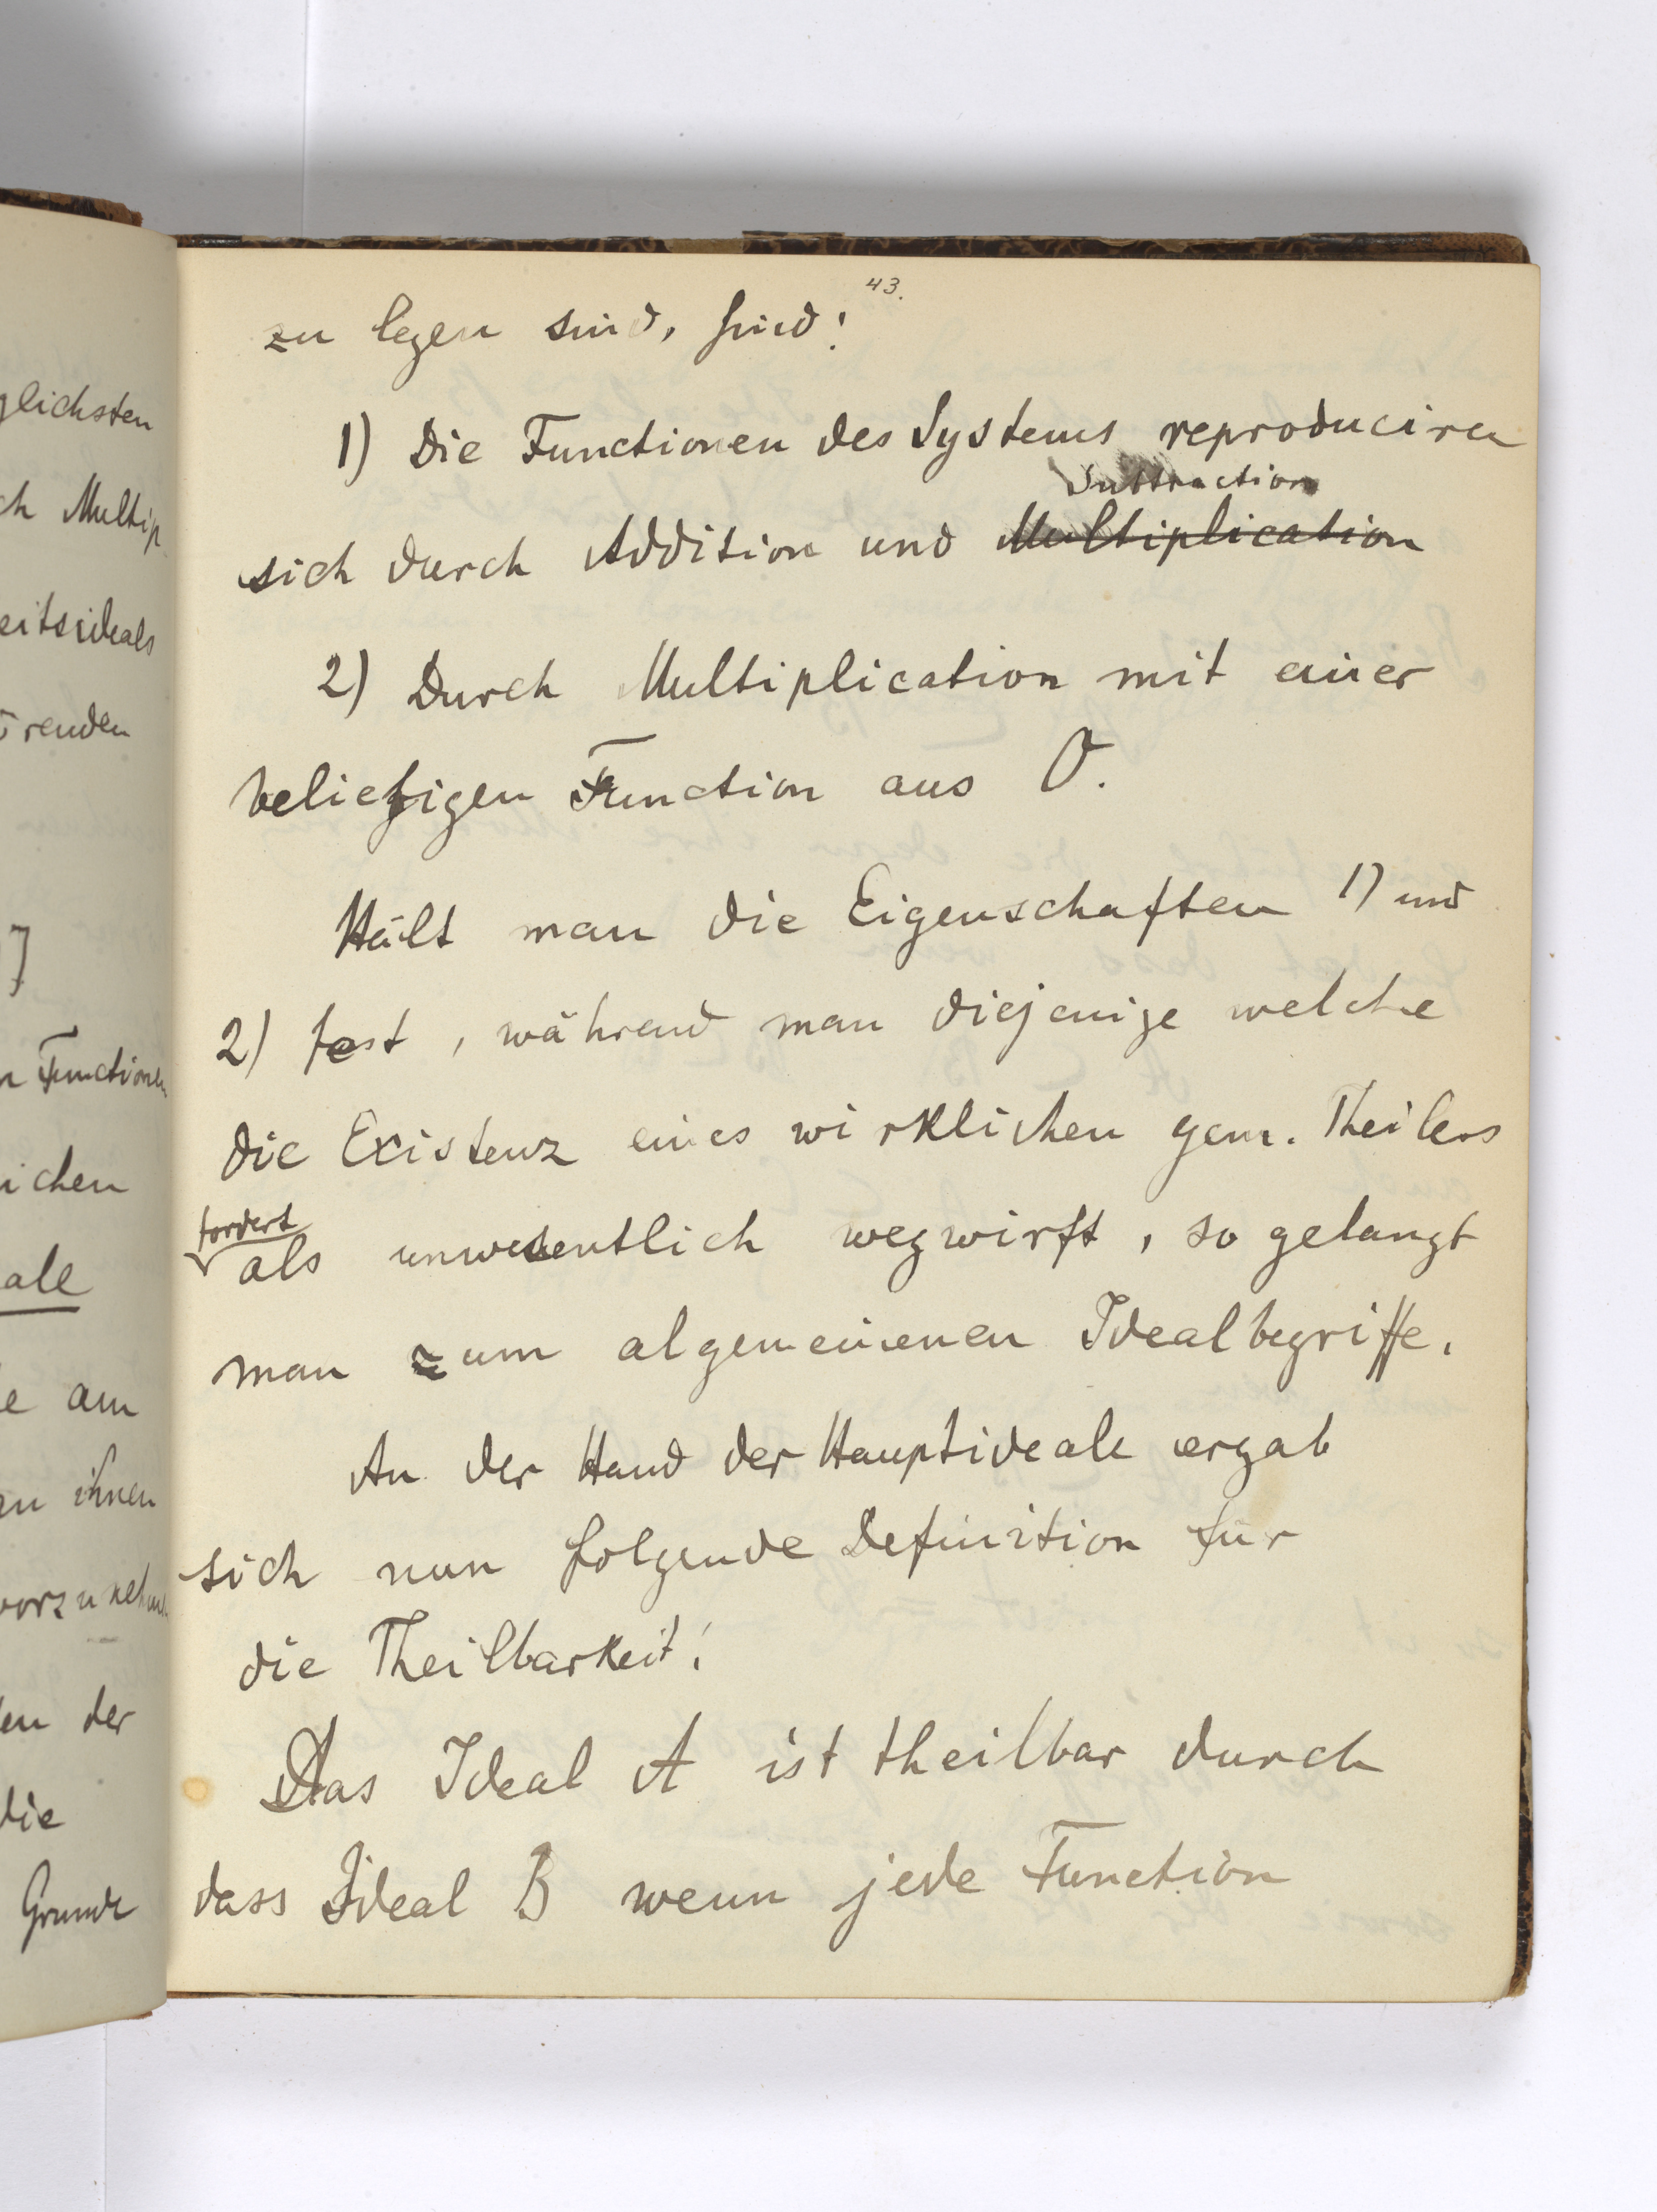 glichsten
ch Multip
eitsideals
renden
7
n Functionen
ichen
ale
e am
en ihnen
vorzunehm
en der
die
Grunde
43.
zu legen sind, sind:
1) Die Functionen des Systems reproduciren
Subtraction
sich durch Addition und Multiplication
2) Durch Multiplication mit einer
beliebigen Function aus O.
Hält man die Eigenschaften 1) und
2) fest, während man diejenige welche
die Existenz eines wirklichen gem. Theilers
fordert
als unwesentlich wegwirft, so gelangt
man zum algemeinenen Idealbegriffe.
An der Hand der Hauptideale ergab
sich nun folgende Definition für
die Theilbarkeit:
Das Ideal A ist theilbar durch
dass Ideal B wenn jede Function